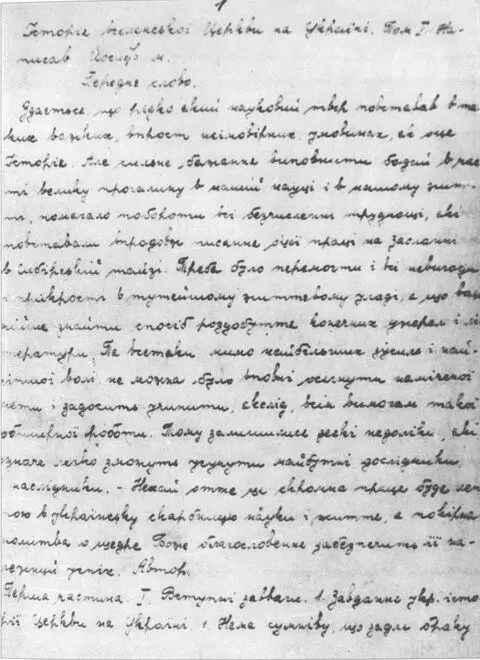 1
Історія вселенської Церкви на Україні. Том I. На-
писав Йосиф м.
Переднє слово.
Здається, що рідко який науковий твір повставав в та-
ких важких, впрост неімовірних умовинах, як оце
Історія. Але сильне бажання виповнити бодай в час
ті велику прогалину в нашій науці і в нашому жит-
ті, помагало побороти всі безчисленні труднощі, які
повставали впродовж писання оцеї праці на засланні
в сибірській тайзі. Треба було перемогти і всі невигоди
і прикрості в тутейшому життєвому укладі, а що важ
ніше знайти спосіб роздобуття конечних джерел і лі
тератури. Та всетаки мимо найбільших зусиль і най-
ліпшої волі не можна було вповні осягнути наміченої
мети і задосить учинити, як слід, всім вимогам такої
обширної роботи. Тому залишилися деякі недоліки, які
одначе легко зможуть усунути майбутні дослідники
наслідники. - Нехай отже ця скромна праця буде леп
тою в українську скарбницю науки і життя, а покірна
молитва о щедре Боже благословення забезпечить їй на-
лежний успіх. Автор.
Перша частина. I. Вступні завваги. 1. Завдання укр. істо
рії Церкви на Україні. 1. Нема сумніву, що задля браку